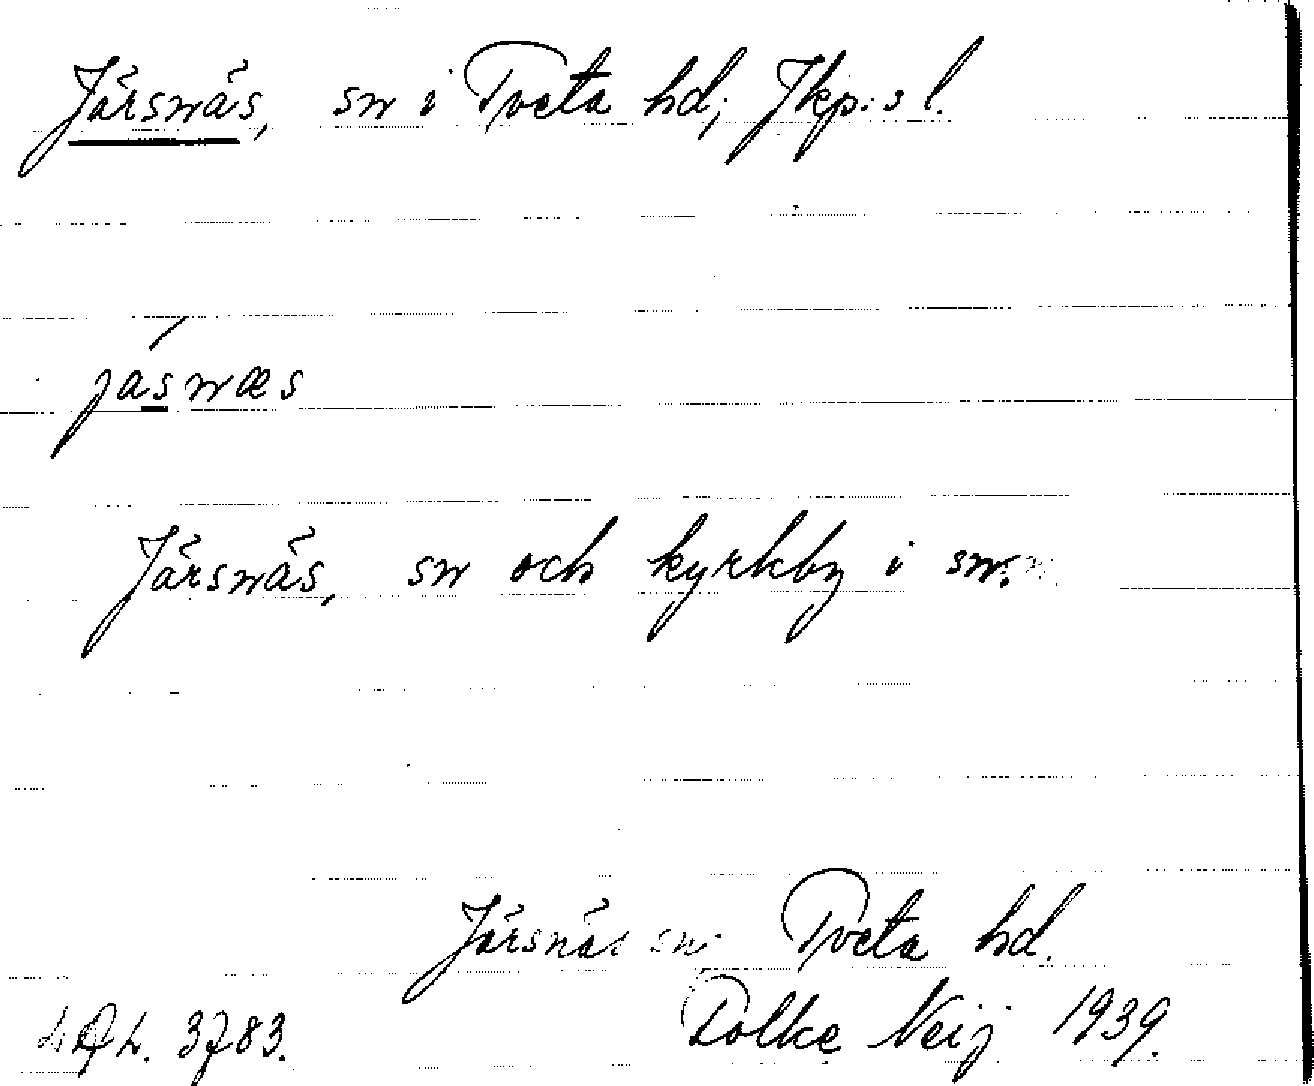 Järsnäs, sn i Tveta hd, Jkp:s l.
jásnæs
Järsnäs, sn och kyrkby i sn.
Järsnäs sn. Tveta hd.
3783. Folke Neij 1939.